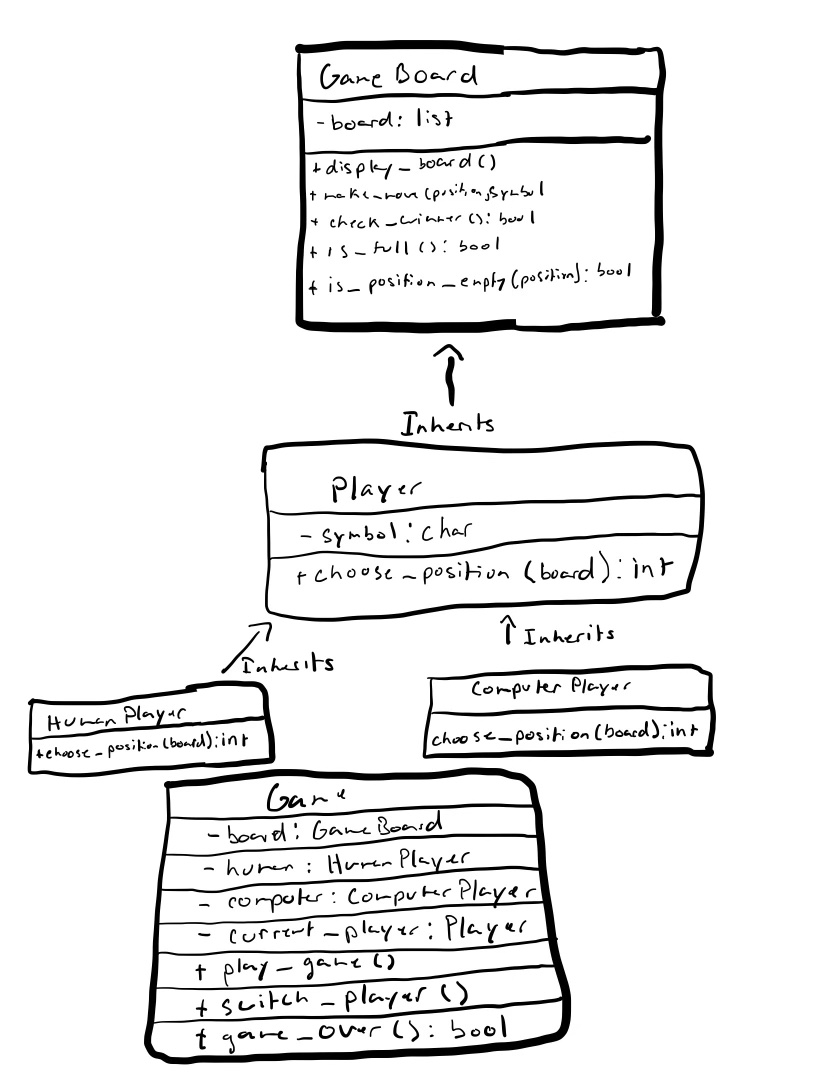 GameBoard
- board: list
+ display_board()
+ make_move(position,symbol
+ check_winner(): bool
+ is_full(): bool
+ is_position_empty(position): bool
Inherits
Player
- symbol: char
+ choose_position (board): int
Inherits
Inherits
Human Player
+choose_position(board): int
Computer Player
choose_position(board): int
Game
- board: GameBoard
- human: HumanPlayer
- computer: ComputerPlayer
- current_player: Player
+ play_game()
+ switch_player()
+ game_over(): bool